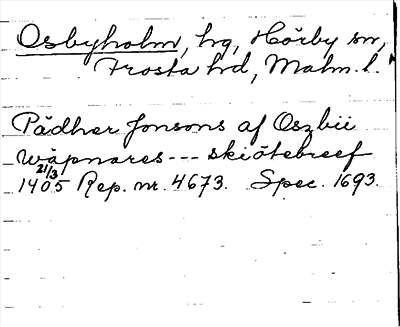 Osbyholm, hg, Hörby sn,
Frosta hd, Malm. l.
Pådher Jonsons af Oszbii
wäpnares --- skiötebreef
21/3
1405 Rep. nr. 4673. Spec. 1693.